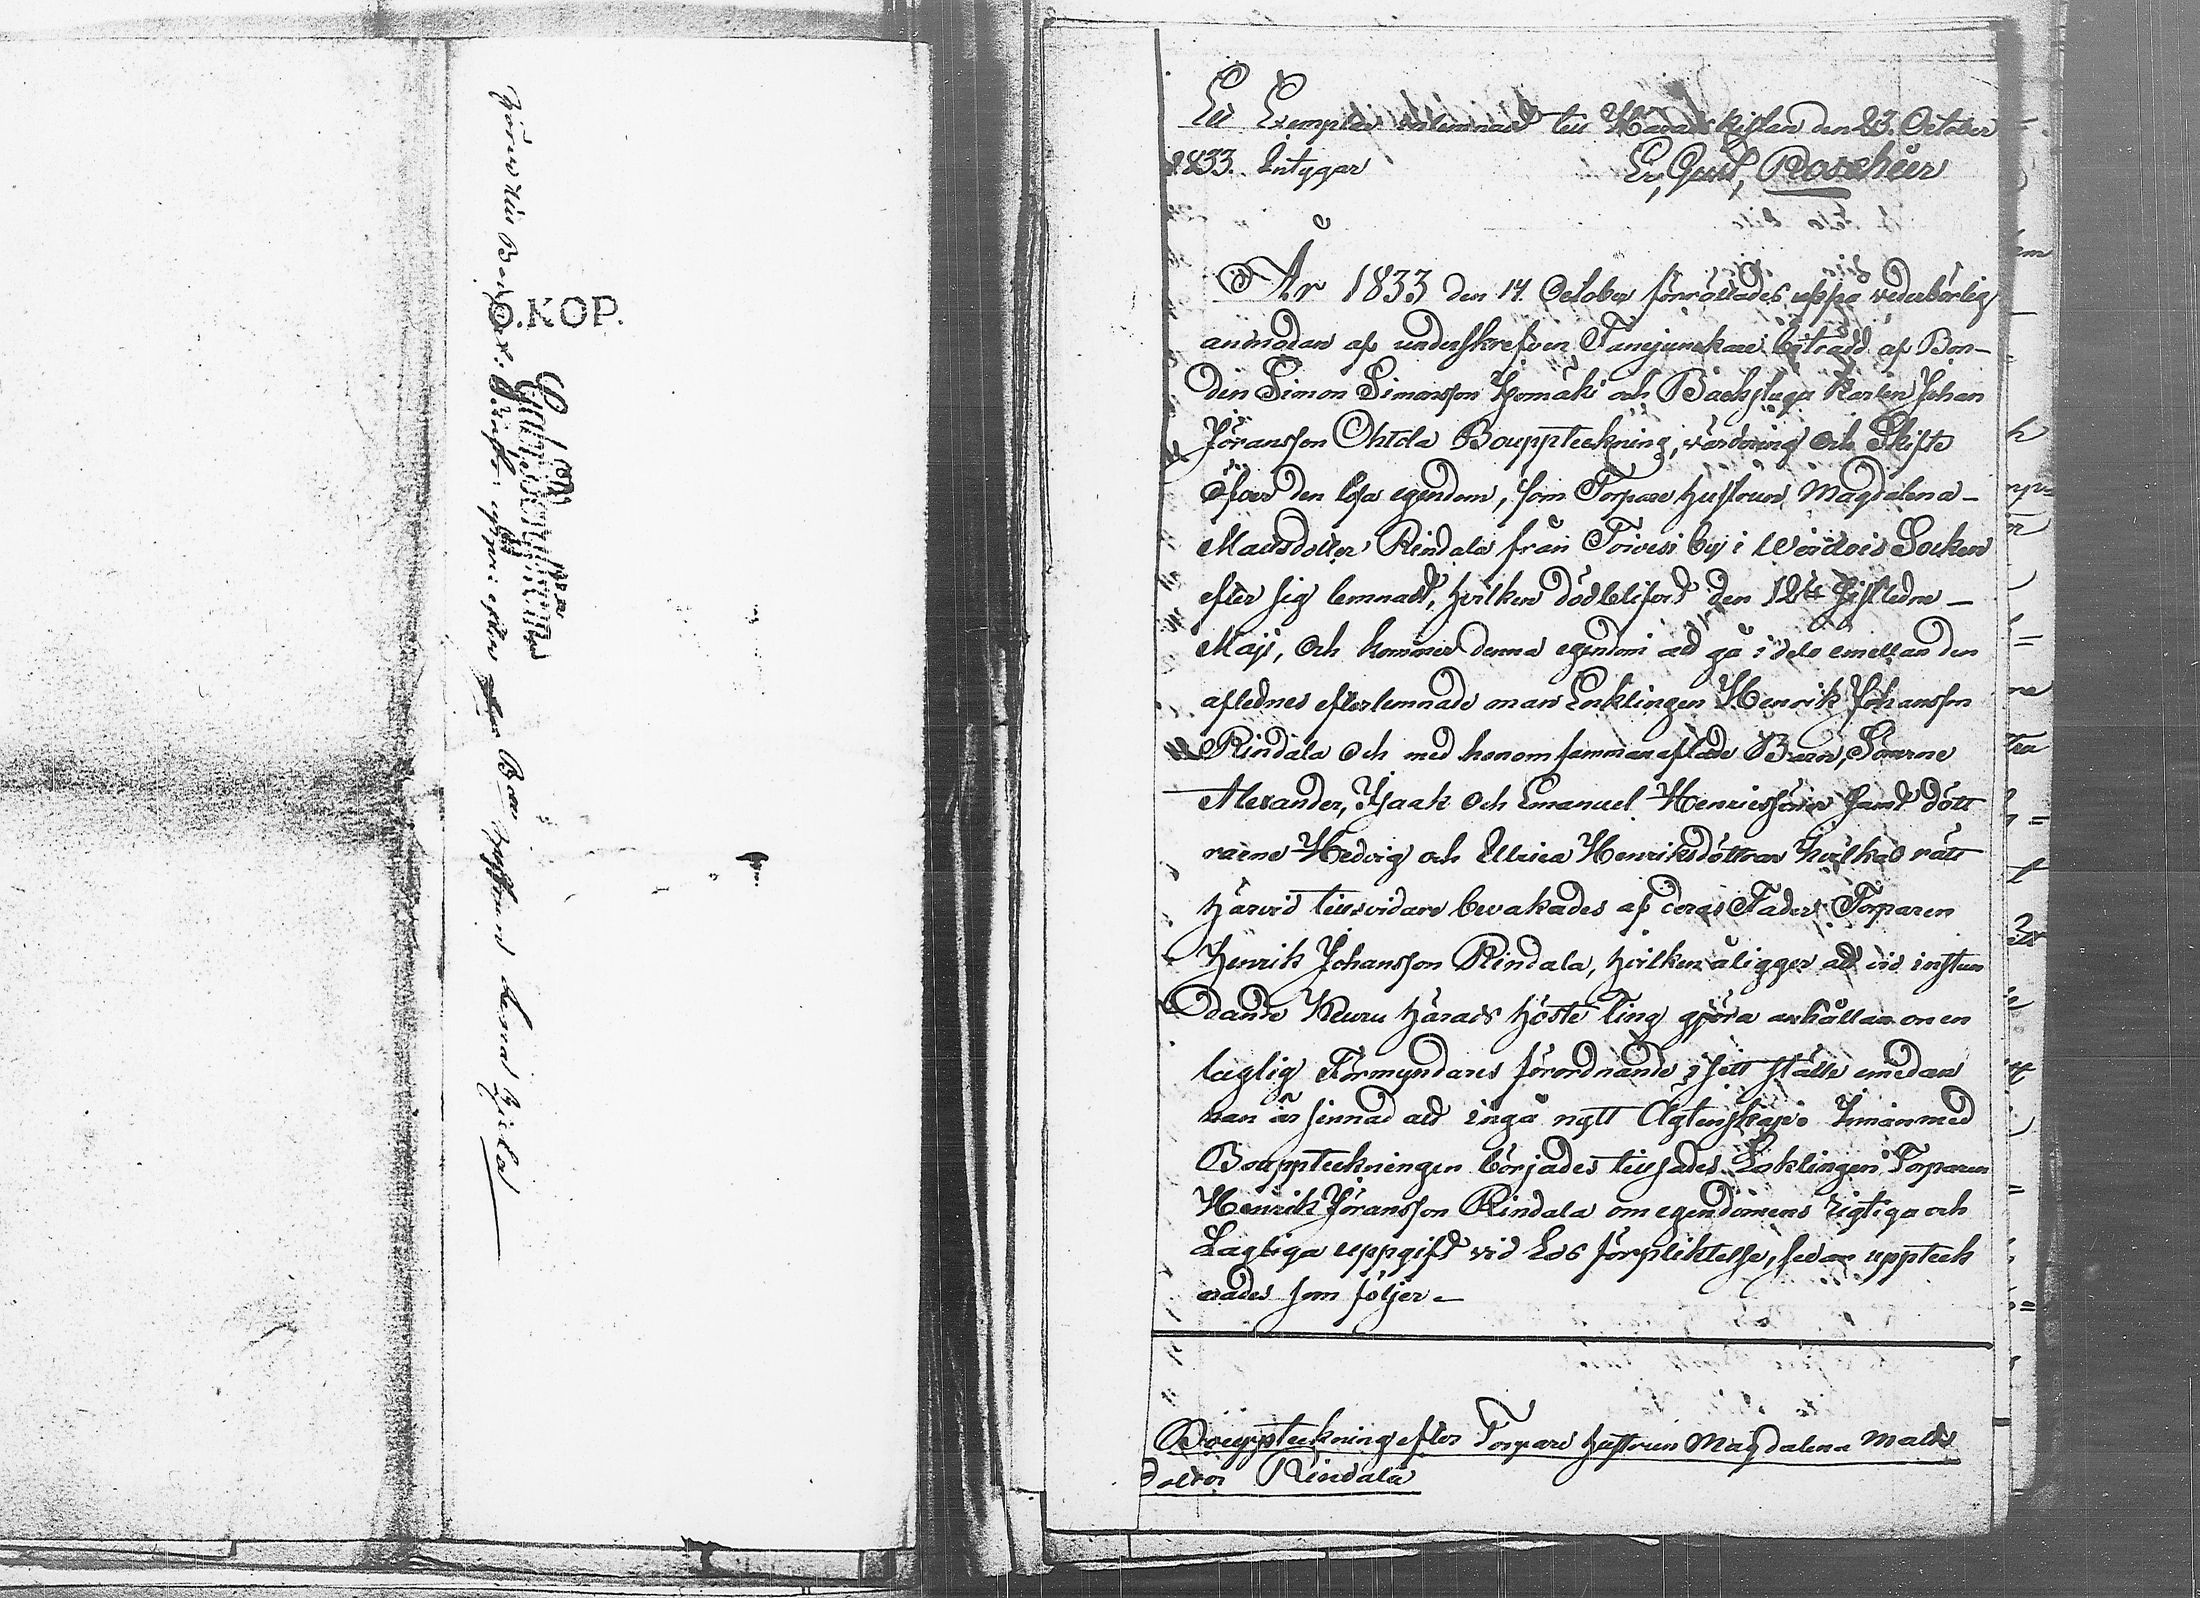 Ett Exemplar inlemnadt till Häradskistan den 23. October
1833. Intygar Er, Gust, Roschier
År 1833 den 14 October förrättades uppå vederbörlig
anmodan af underskrefven Tanejunckare biträdd af Bon-
den Simon Simonsson Homäki och Backstugu Karlen Johan
Jöransson Ohtola Bouppteckning, värdering och Skifte
öfver den lösa egendom, som Torpare hustrun Magdalena
Mattsdotter Rindala från Toivesi by i Wirdois Socken
efter sig lemnadt, hvilken dödblifvit den 12te sistledne
Maji, och kommer denna egendom att gå i dels emellan den
aflednes efterlemnade man Enklingen Henrik Johansson
Rindala och med honom sammanaflade Barn, Sönerne
Alexander, Isaak och Emanuel Henricssöner samt dött
rarne Hedvig och Ulrica Henriksdöttrar hvilkas rätt
härvid tillsvidare bevakades af deras Fader Torparen
Henrik Johansson Rindala, hvilken åligger att vid instun
dande Keuru härads höste Ting gjöra anhållan om en
laglig Förmyndares förordnande i sitt ställe emedan
han är sinnad att ingå nytt Ägtenskap. Innan med
Bouppteckningen börjades tillsades Enklingen Torparen
Henrik Jöransson Rindala om egendomens rigtiga och
Lagliga uppgift vid Eds förpliktelse, sedan uppteck
nades som följer
Bouppteckning efter Torpare hustrun Magdalena Matts
dotter Rindala
D.KOP.
efter hustrun